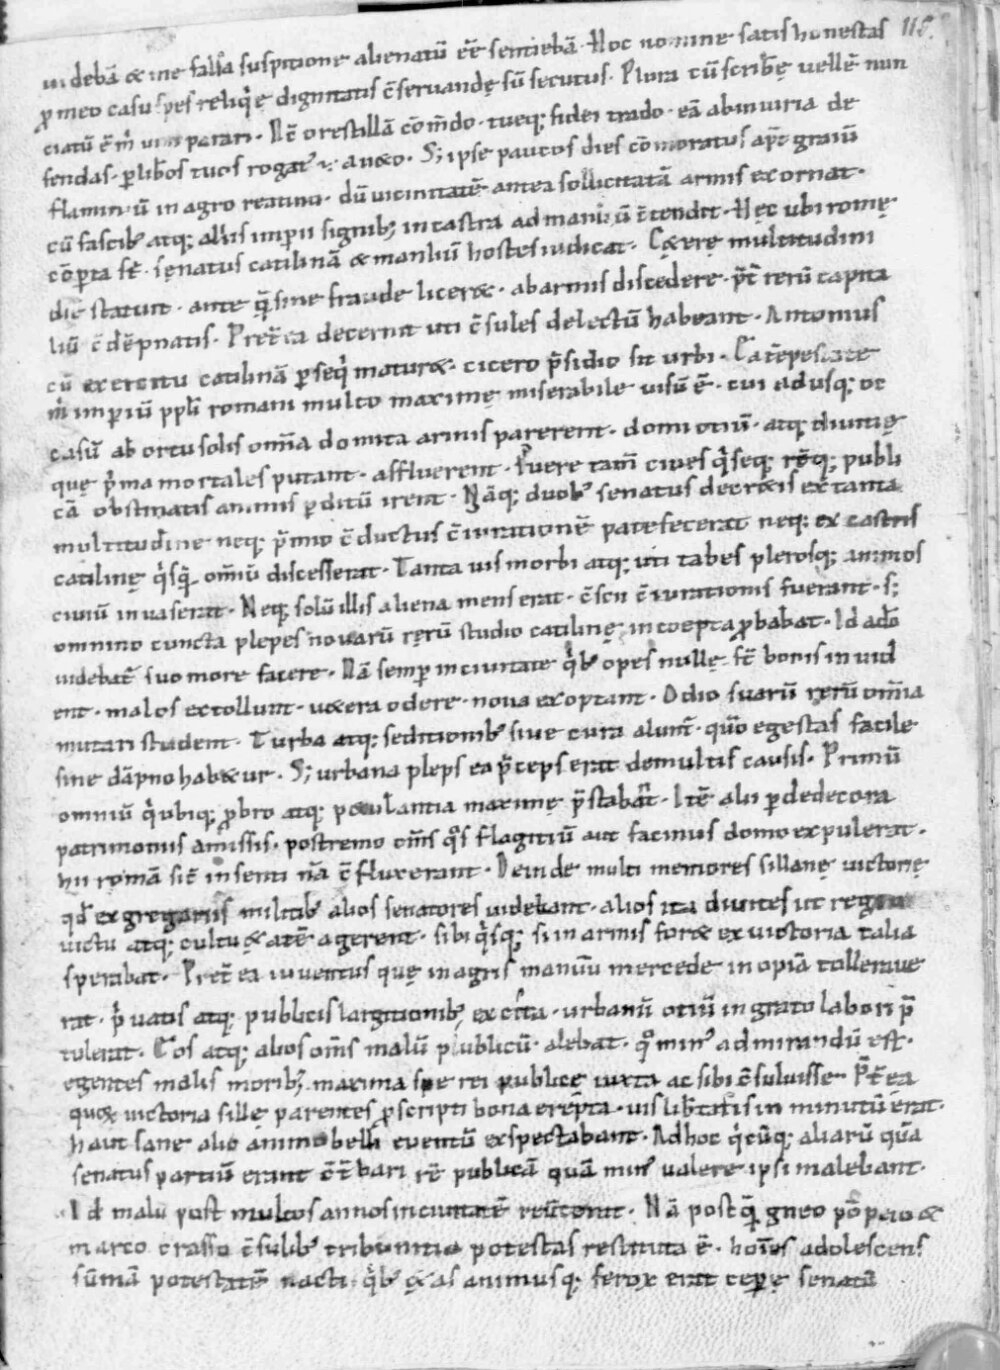 115.
uidebā & me falsa suspitione alienatū eē sentiebā. Hoc nomine satis honestas
p meo casu spes reliq̇ę dignitatis c̄seruandę sū secutus. Plura cū scriberę uellē nun
ciatū ē m̄ uim parari. Nc̄ orestillā cōm̄do. tueq; fidei trado. eā abiniuria de
fendas. p̱ lib̄os tuos rogat᷒. au&o. S; ipse paucos dies cōmoratus ap̄t gaiū
flaminiū in agro reatino. dū uicinitatē antea sollicitatā armis exornat.
cū fascib; atq; aliis imp̱ii signib; in castra ad manliū c̄tendit. Hęc ubi romę
cōp̱ta st̄. sęnatus catilinā & manliū hostes iudicat. C&erę multitudini
diē statuit. ante q̄ sine fraude licer&. ab armis discedere. p̄t rerū capita
liū c̄dēpnatis. Pret̄ea decernit uti c̄sules delectū habeant. Antonius
cū exercitu catilinā p̱seq̇ matur&. cicero p̄sidio sit urbi. Ea tēpestate
m̄ imp̱iū ppli romani multo maximę miserabile uisū ē. cui adusq; oc
casū ab ortu solis om̄a domita armis parerent. domi otiū. atq; diuitię
quę p̄ma mortales putant. affluerent. Fuere tam̄ ciues q̇ seq; rēq; publi
cā obstinatis animis p̱ditū irent. Nāq; duob; senatus decr&is ex tanta
multitudine neq; p̄mio c̄ductus c̄iurationē patefecerat neq; ex castris
catilinę q̇sq̄ om̄iū discesserat. Tanta uis morbi atq; uti tabes plerosq; animos
ciuiū inuaserat. Neq; solū illis aliena mens erat. c̄scii c̄iurationis fuerant. s;
omnino cuncta plepes nouarū ręrū studio catilinę incoepta p̱babat. Id ado͞
uidebat᷒ suo more facere. Nā semp̱ in ciuitate q̇b; opes nullę st̄ bonis inuid
ent. malos extollunt. u&era odere. noua exoptant. Odio suarū rerū om̄ia
mutari student. Turba atq; seditionib; siue cura alunt᷒. quo͞ egestas facile
sine dāpno hab&ur. S; urbana pleps ea p̄ceps erat de multis causis. Primū
omniū q̇ ubiq; p̱bro atq; p&ulantia maximę p̄stabāt. Itē alii p̱ dedecora
patrimoniis amissis. postremo om̄s q̊s flagitiū aut facinus domo expulerat.
hii romā sic̄ in sentinā c̄fluxerant. Deinde multi memores sillanę uictorię
qd̄ ex gregariis militib; alios senatores uidebant. alios ita diuites ut regio
uictu atq; cultu &atē agerent. sibi q̇sq; si in armis for& ex uictoria talia
sperabat. Pret̄ea iuuentus quę in agris manuū mercede inopiā tolleraue
rat. ṗuatis atq; publicis largitionib; excita. urbanū otiū ingrato labori p̄
tulerat. Eos atq; alios om̄s malū publicū alebat. q̊ min᷒ admirandū est.
egentes malis morib; maxima spe rei publicę iuxta ac sibi c̄suluisse. P̄t̄ea
quor̄ uictoria sillę parentes p̱scripti bona erepta. ius lib̄tatis inminutū erat.
haut sane alio animo belli euentū exspectabant. Adhoc q̇cūq; aliarū quā
senatus partiū erant c̄t̄bari rē publicā quā min᷒ ualere ipsi malebant.
Id malū post multos annos in ciuitatē reūterat. Nā postq̄ gneo pōpeio &
marco crasso c̄sulib; tribunitia potestas restituta ē. hoīes adolescens
sūmā potestatē nacti. q̇b; &as animusq; ferox erat cepe̱ę senatū